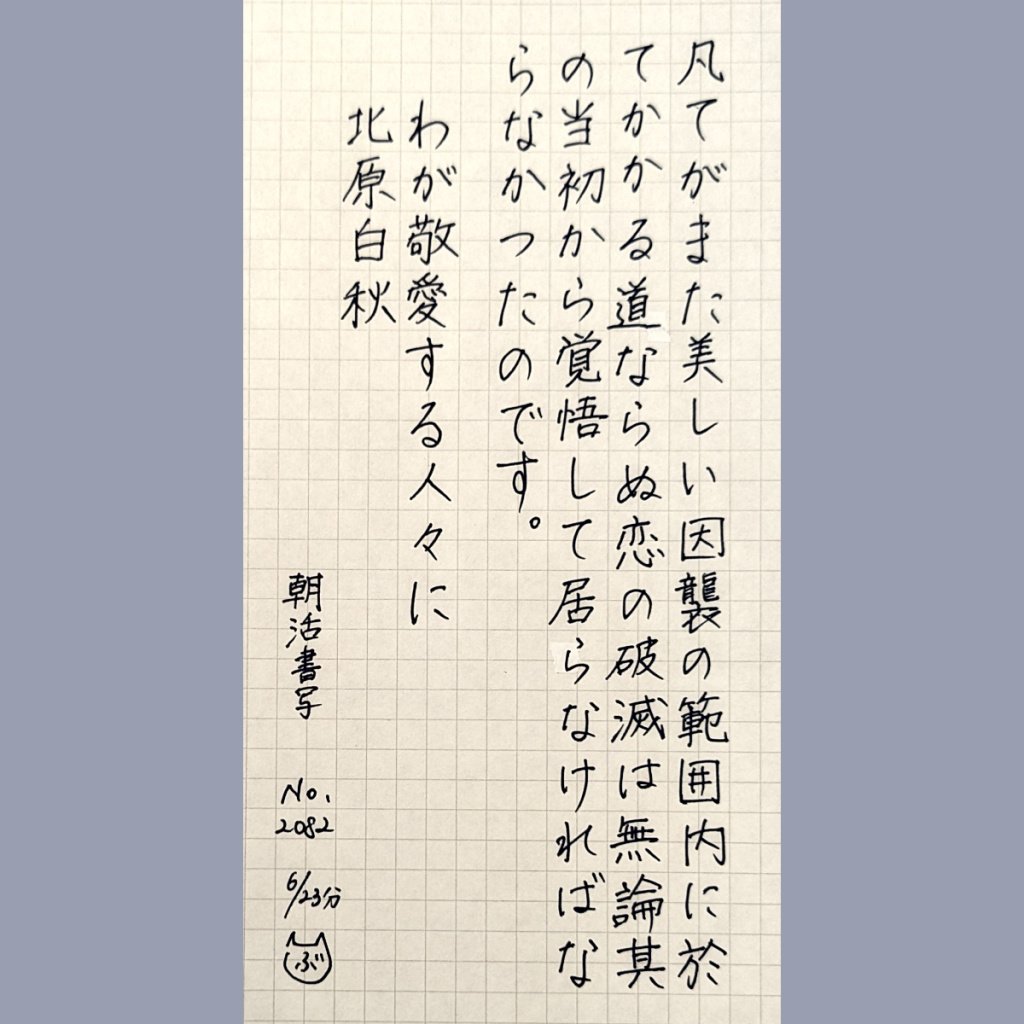 凡てがまた美しい因襲の範囲内に於
てかかる道ならぬ恋の破滅は無論其
の当初から覚悟して居らなければな
らなかつたのです。
わが敬愛する人々に
北原白秋
朝活書写
No.
2082
6/23分
ぶ